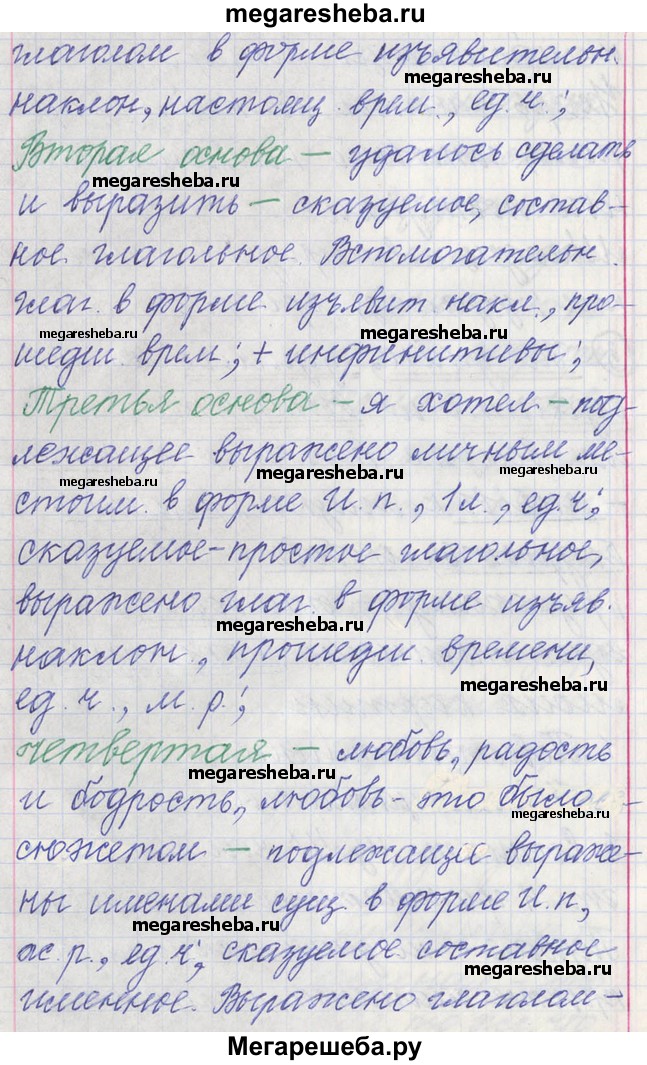 megaresheba.ru
глаголом в форме изъявительн.
megaresheba.ru
наклон, настоящ. врем., ед.ч.;
Вторая основа – удалось сделать
megaresheba.ru
и выразить – сказуемое, состав-
ное глагольное. Вспомогательн.
глаг. в форме изъявит. накл., про-
megaresheba.ru megaresheba.ru
шедш. врем.; + инфинитивы;
Третья основа – я хотел – под-
лежащее выражено личным ме-
megaresheba.ru megaresheba.ru megaresheba.ru
стоим. в форме И.п., 1 л., ед.ч.;
сказуемое – простое глагольное,
выражено глаг. в форме изъяв.
megaresheba.ru
наклон., прошедш. времени,
megaresheba.ru
ед.ч., м.р.;
четвертая – любовь, радость
megaresheba.ru
и бодрость, любовь – это было
megaresheba.ru
сюжетом – подлежащие выраже-
ны именами сущ. в форме И.п.,
megaresheba.ru
ж.р., ед.ч.; сказуемое составное
megaresheba.ru
именное. Выражено глаголом –
Мегарешеба.ру